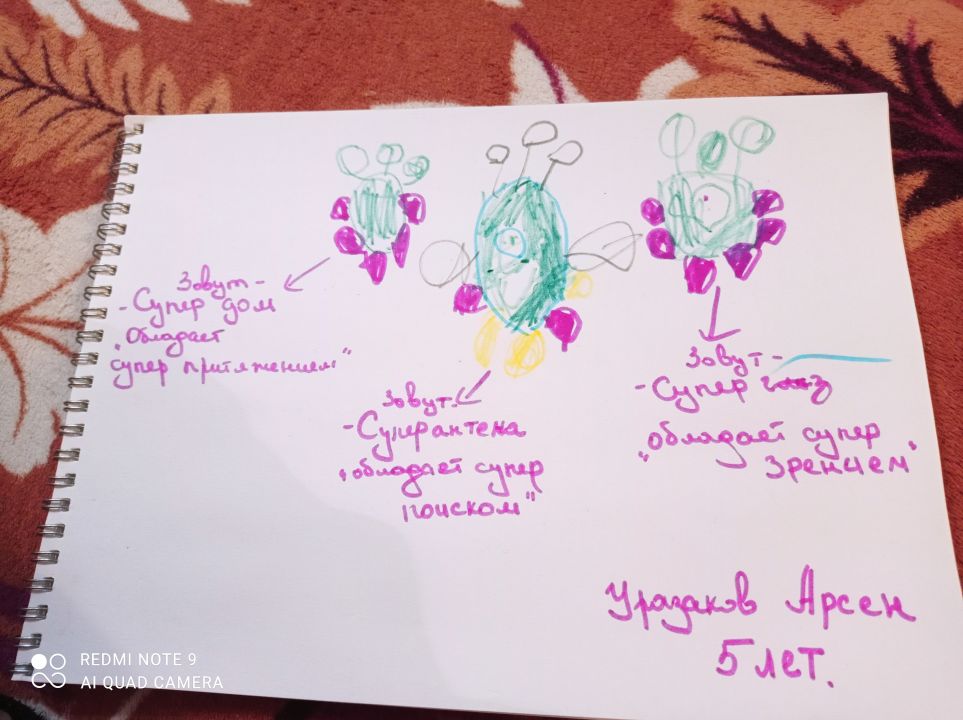 Зовут -
- Супер дом
"Обладает
супер притяжением"
Зовут.
- Суперантена
"обладает супер
поиском"
Зовут -
- Супер глаз
"обладает супер
зрением"
Уразаков Арсен
5 лет.
REDMI NOTE 9
AI QUAD CAMERA